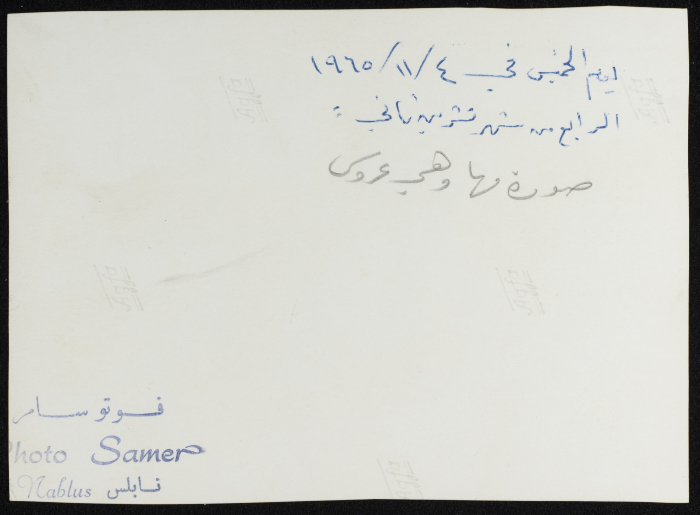 يوم الخميس في ٤/١١/١٩٦٥
الرابع من شهر تشرين ثاني =
صورة مها وهي عروس
فوتو سامر
Photo Samer
Nablus نابلس